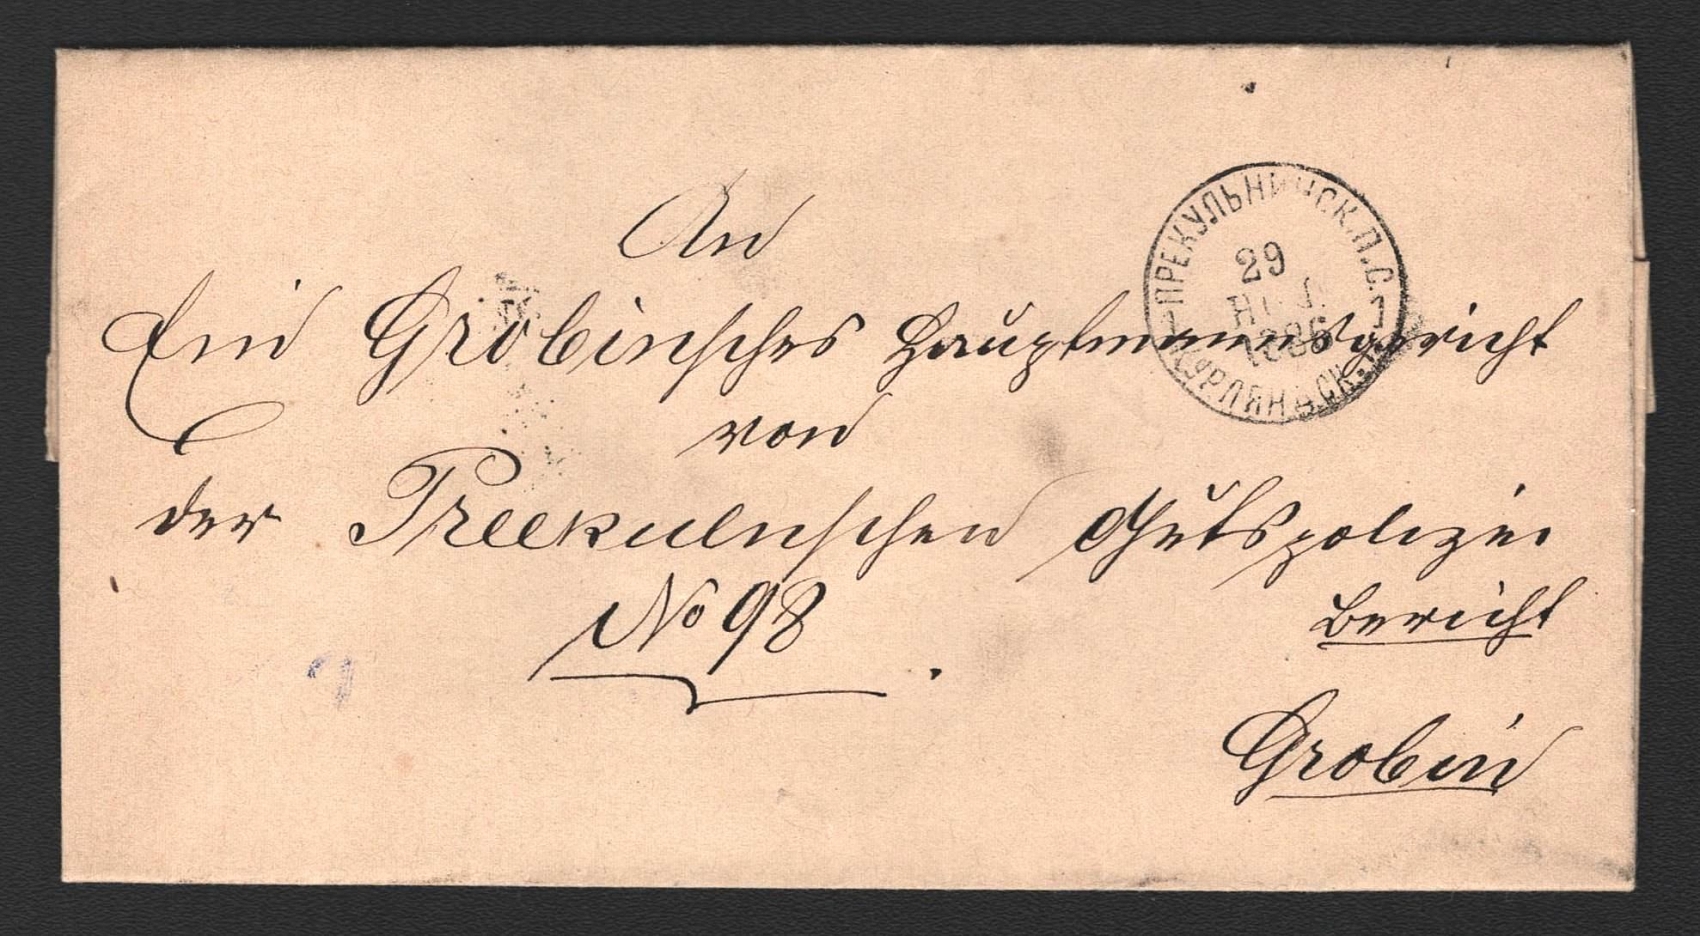 An
Ein Grobinsches Hauptmannsgericht
von
der Preekulnschen Gutspolizei
No 98
Bericht
Grobin
ПРЕКУЛЬНИНСК.П.С.
29
1886
1 1
КУРЛЯНДСК.